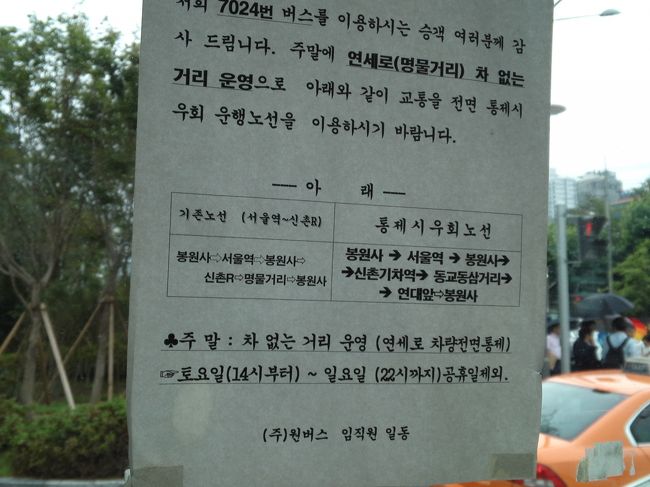 저희 7024번 버스를 이용하시는 승객 여러분께 감
사 드립니다. 주말에 연세로(명물거리) 차 없는
거리 운영으로 아래와 같이 교통을 전면 통제시
우회 운행노선을 이용하시기 바랍니다.
── 아 래 ──
기존노선 (서울역~신촌R) 통제시우회노선
봉원사⇨서울역⇨봉원사⇨
신촌R⇨명물거리⇨봉원사
봉원사 ➔ 서울역 ➔ 봉원사➔
➔신촌기차역➔ 동교동삼거리➔
➔ 연대앞⇨봉원사
♣주 말 : 차 없는 거리 운영 (연세로 차량전면통제)
☞토요일(14시부터) ~ 일요일 (22시까지)공휴일제외.
(주)원버스 임직원 일동